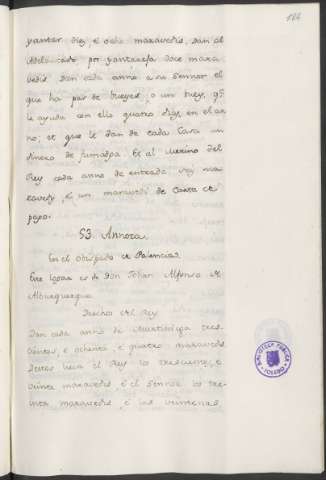 184
yantar diez e ocho maravedis, dan al
Adelantado por yantareja doce mara
vedis dan cada anno a su Sennor el
que ha par de bueyes, o un buey, q̃
le ayuda con ello quatro dias en el an
no; et que le dan de cada Casa un
dinero de fumadga. Et al Merino del
Rey cada anno de entrada seis ma
ravedis, e un maravedi de Carta et
papo.
53. Annoza
En el obispado de Palencia
Este logar es de Don Johan Alfonso de
Alburquerque
Derechos del Rey
Dan cada anno de Martiniega tres
cientos, e ochenta e quatro maravedis
destos lieva el Rey los trescientos, e
veinte maravedis é el Sennor los tre
inta maravedis é las veintenas
BIBLIOTECA PUBLICA
TOLEDO